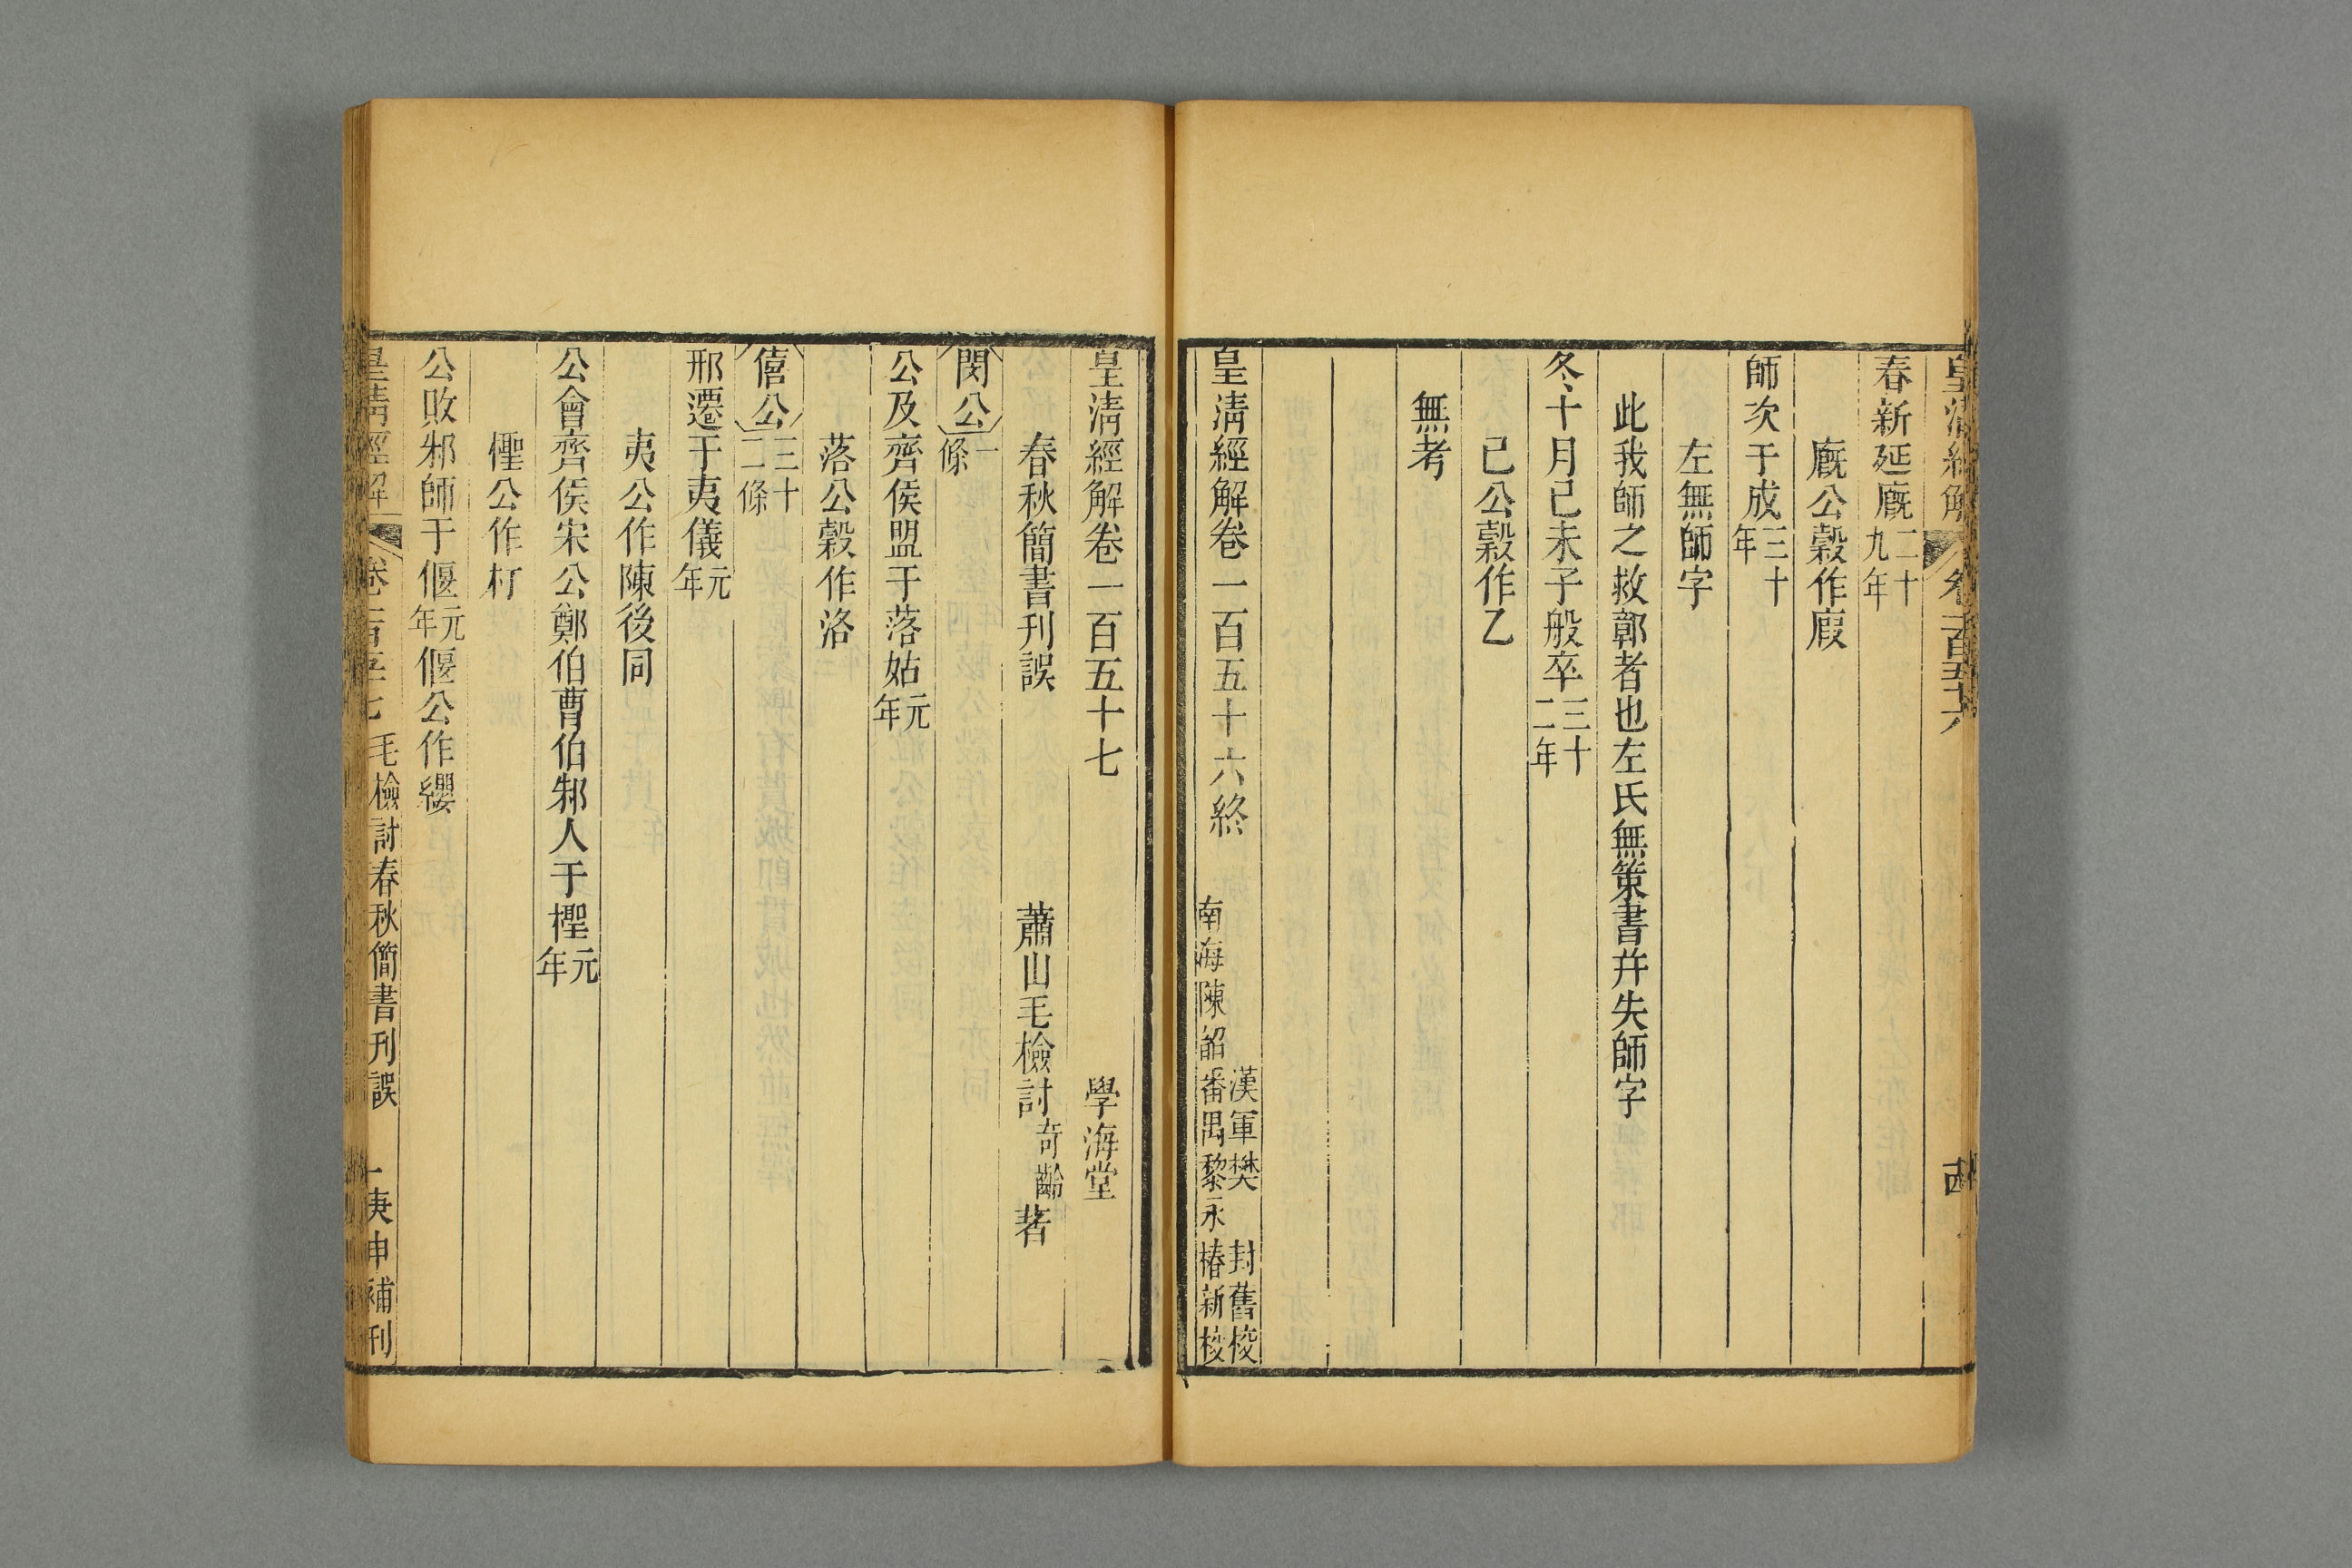 皇清經解 卷一百五十六 茜
春新延廐二十九年
廐公穀作廄
師次于成三十年
左無師字
此我師之救鄣者也左氏無策書并失師字
冬十月己未子般卒三十二年
己公穀作乙
無考
皇清經解卷一百五十六終
漢軍樊封舊校
南海陳韶
番禺黎永椿新校
皇清經解卷一百五十七 學海堂
春秋簡書刊誤 蕭山毛檢討奇齡著
閔公一條
公及齊侯盟于落姑元年
落公穀作洛
僖公三十二條
邢遷于夷儀元年
夷公作陳後同
公會齊侯宋公鄭伯曹伯邾人于檉元年
檉公作朾
公敗邾師于偃元年偃公作纓
皇清經解 卷一百五十七 毛檢討春秋簡書刊誤 一 庚申補刊